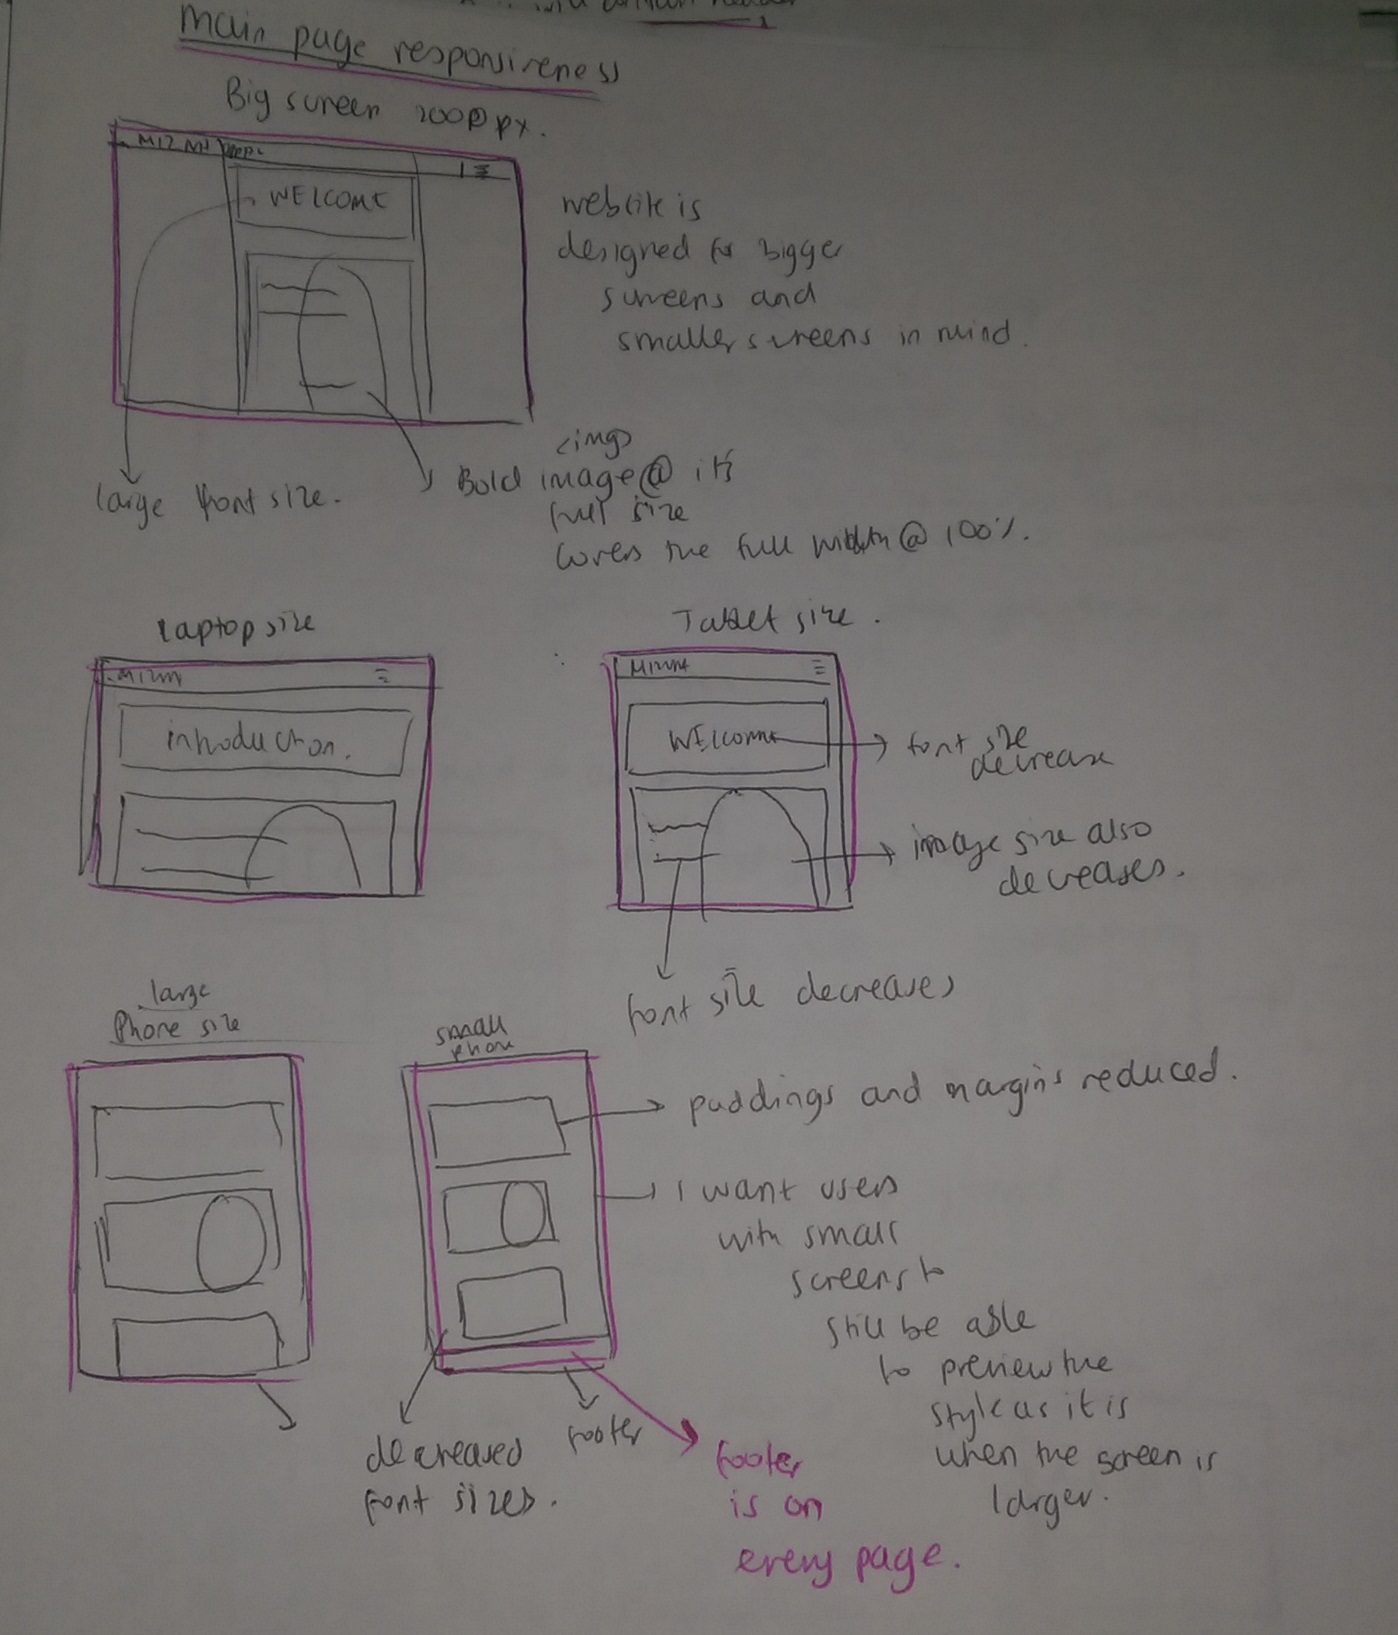 with
main page responsiveness
Big screen 2000px.
WELCOME
website is
designed for bigger
screens and
smaller screens in mind.
large font size.
<img>
Bold image @ it's
full size
covers the full width @ 100%.
Laptop size
introduction.
Tablet size.
WELCOME
font size
decrease
image size also
decreases.
font size decreases
large
Phone size
small
phone
paddings and margins reduced.
I want users
with small
screens to
still be able
to preview the
style as it is
when the screen is
larger.
decreased
font sizes.
footer
footer
is on
every page.